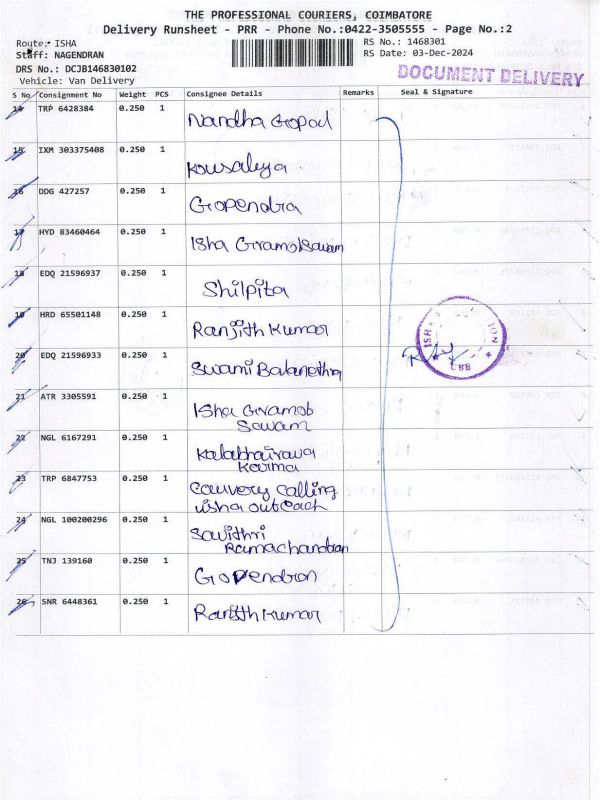 THE PROFESSIONAL COURIERS, COIMBATORE
Delivery Runsheet - PRR - Phone No.:0422-3505555 - Page No.:2
Route: ISHA
RS No.: 1468301
Staff: NAGENDRAN
RS Date: 03-Dec-2024
DRS No.: DCJB146830102
DOCUMENT DELIVERY
Vehicle: Van Delivery
S No Consignment No Weight PCS Consignee Details Remarks Seal & Signature
14 TRP 6428384 0.250 1 Nandha Gopal
15 IXM 303375408 0.250 1 Kousalya
16 DDG 427257 0.250 1 Gopendra
17 HYD 83460464 0.250 1 Isha Gramotsavam
18 EDQ 21596937 0.250 1 Shilpita
19 HRD 65501148 0.250 1 Ranjith Kumar
20 EDQ 21596933 0.250 1 Swami Balanethra
21 ATR 3305591 0.250 1 Isha Gramot
Savam
22 NGL 6167291 0.250 1 Kalabhairava
Karma
23 TRP 6847753 0.250 1 Cauvery Calling
isha outreach
24 NGL 100200296 0.250 1 Savithri
Ramachandran
25 TNJ 139160 0.250 1 Gopendran
26 SNR 6448361 0.250 1 Ranjith Kumar